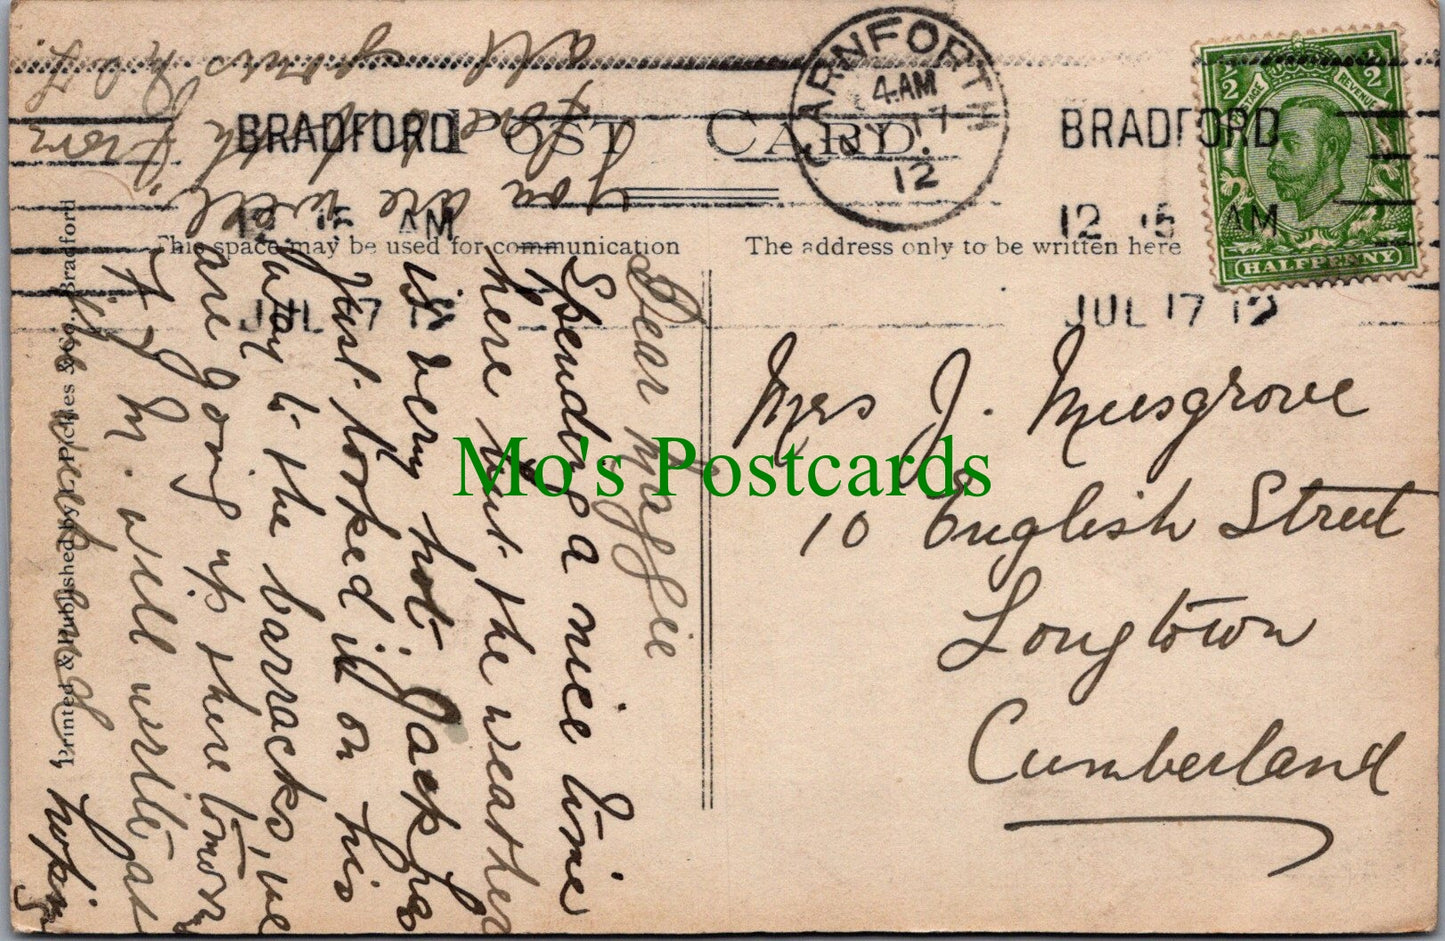 POST CARD.
CARNFORTH
4.AM
17
12
BRADFORD
12 15 AM
JUL 17 12
BRADFORD
12 15 AM
JUL 17 12
½ POSTAGE REVENUE ½
HALFPENNY
This space may be used for communication
The address only to be written here
Printed & Published by Pickles & Co., Bradford
Dear Maggie
Spending a nice time
here but the weather
is very hot. Jack has
just looked in on his
way to the barracks, we
are going up there tomor
M. will write as
hoping
you are well,
love
all yours
from
Mrs J. Musgrove
10 English Street
Longtown
Cumberland
Mo's Postcards